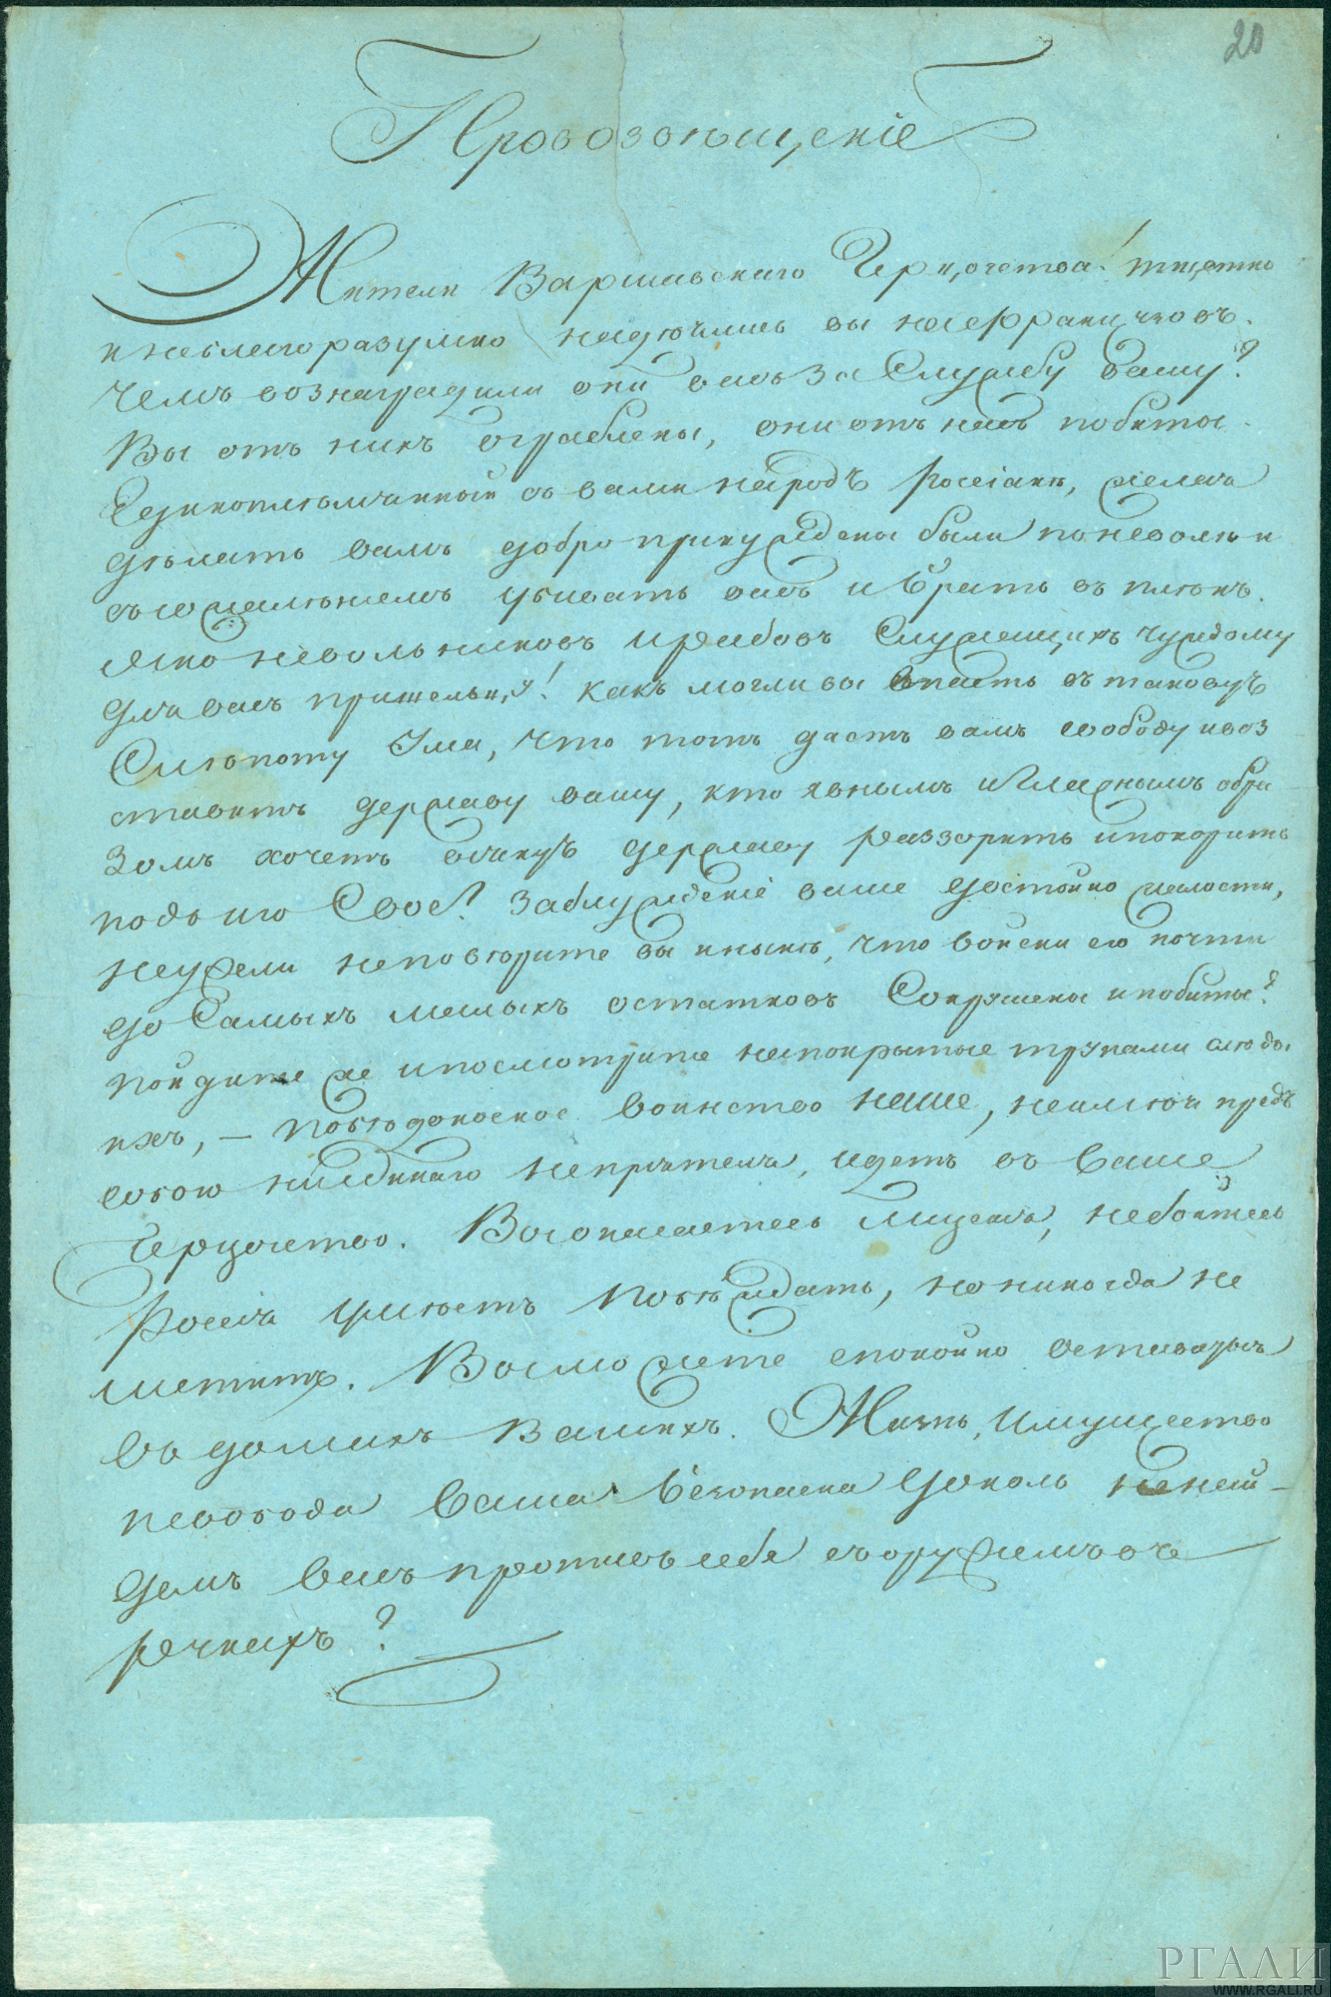 20
Провозвѣщеніе
Жители Варшавскаго Герцогства! тщетно
и неблагоразумно надѣялись вы на Французовъ.
Чемъ вознаградили они васъ за Службу вашу?
Вы отъ нихъ ограблены, они отъ насъ побиты.
Единоплемянный съ вами народъ Россіане, желая
дѣлать вамъ добро принуждены были поневолѣ и
съ сожалѣнiемъ убивать васъ и брать въ плѣнъ.
Яко невольниковъ и рабовъ Служащихъ чуждому
для васъ пришельцу! Какъ могли вы впасть въ таковую
Слѣпоту Ума, что тотъ дастъ вамъ свободу и воз
ставитъ державу вашу, кто явнымъ и гласнымъ обра
зомъ хочетъ всякую державу раззорить и покорить
подъ иго Свое? Заблужденіе ваше достойно жалости,
неужели неповѣрите вы и нынѣ, что войски его почти
до Самыхъ малыхъ остатковъ Сокрушены и побиты?
пойдите же и посмотрите на покрытые трупами слѣды
ихъ, — побѣдоносное воинство наше, неимѣя предъ
собою никакаго непрiятеля, идетъ въ Ваше
Герцогство. Вы опасаетесь мщенiя, небойтесь
Россiя умѣетъ побѣждать, но никогда не
мститъ. Вы можете спокойно оставатся
въ домахъ Вашихъ. Жизнь, Имущество
и свобода Ваша безопасна доколь ненай-
демъ васъ противъ себя съ оружiемъ въ
рукахъ?
РГАЛИ
WWW.RGALI.RU